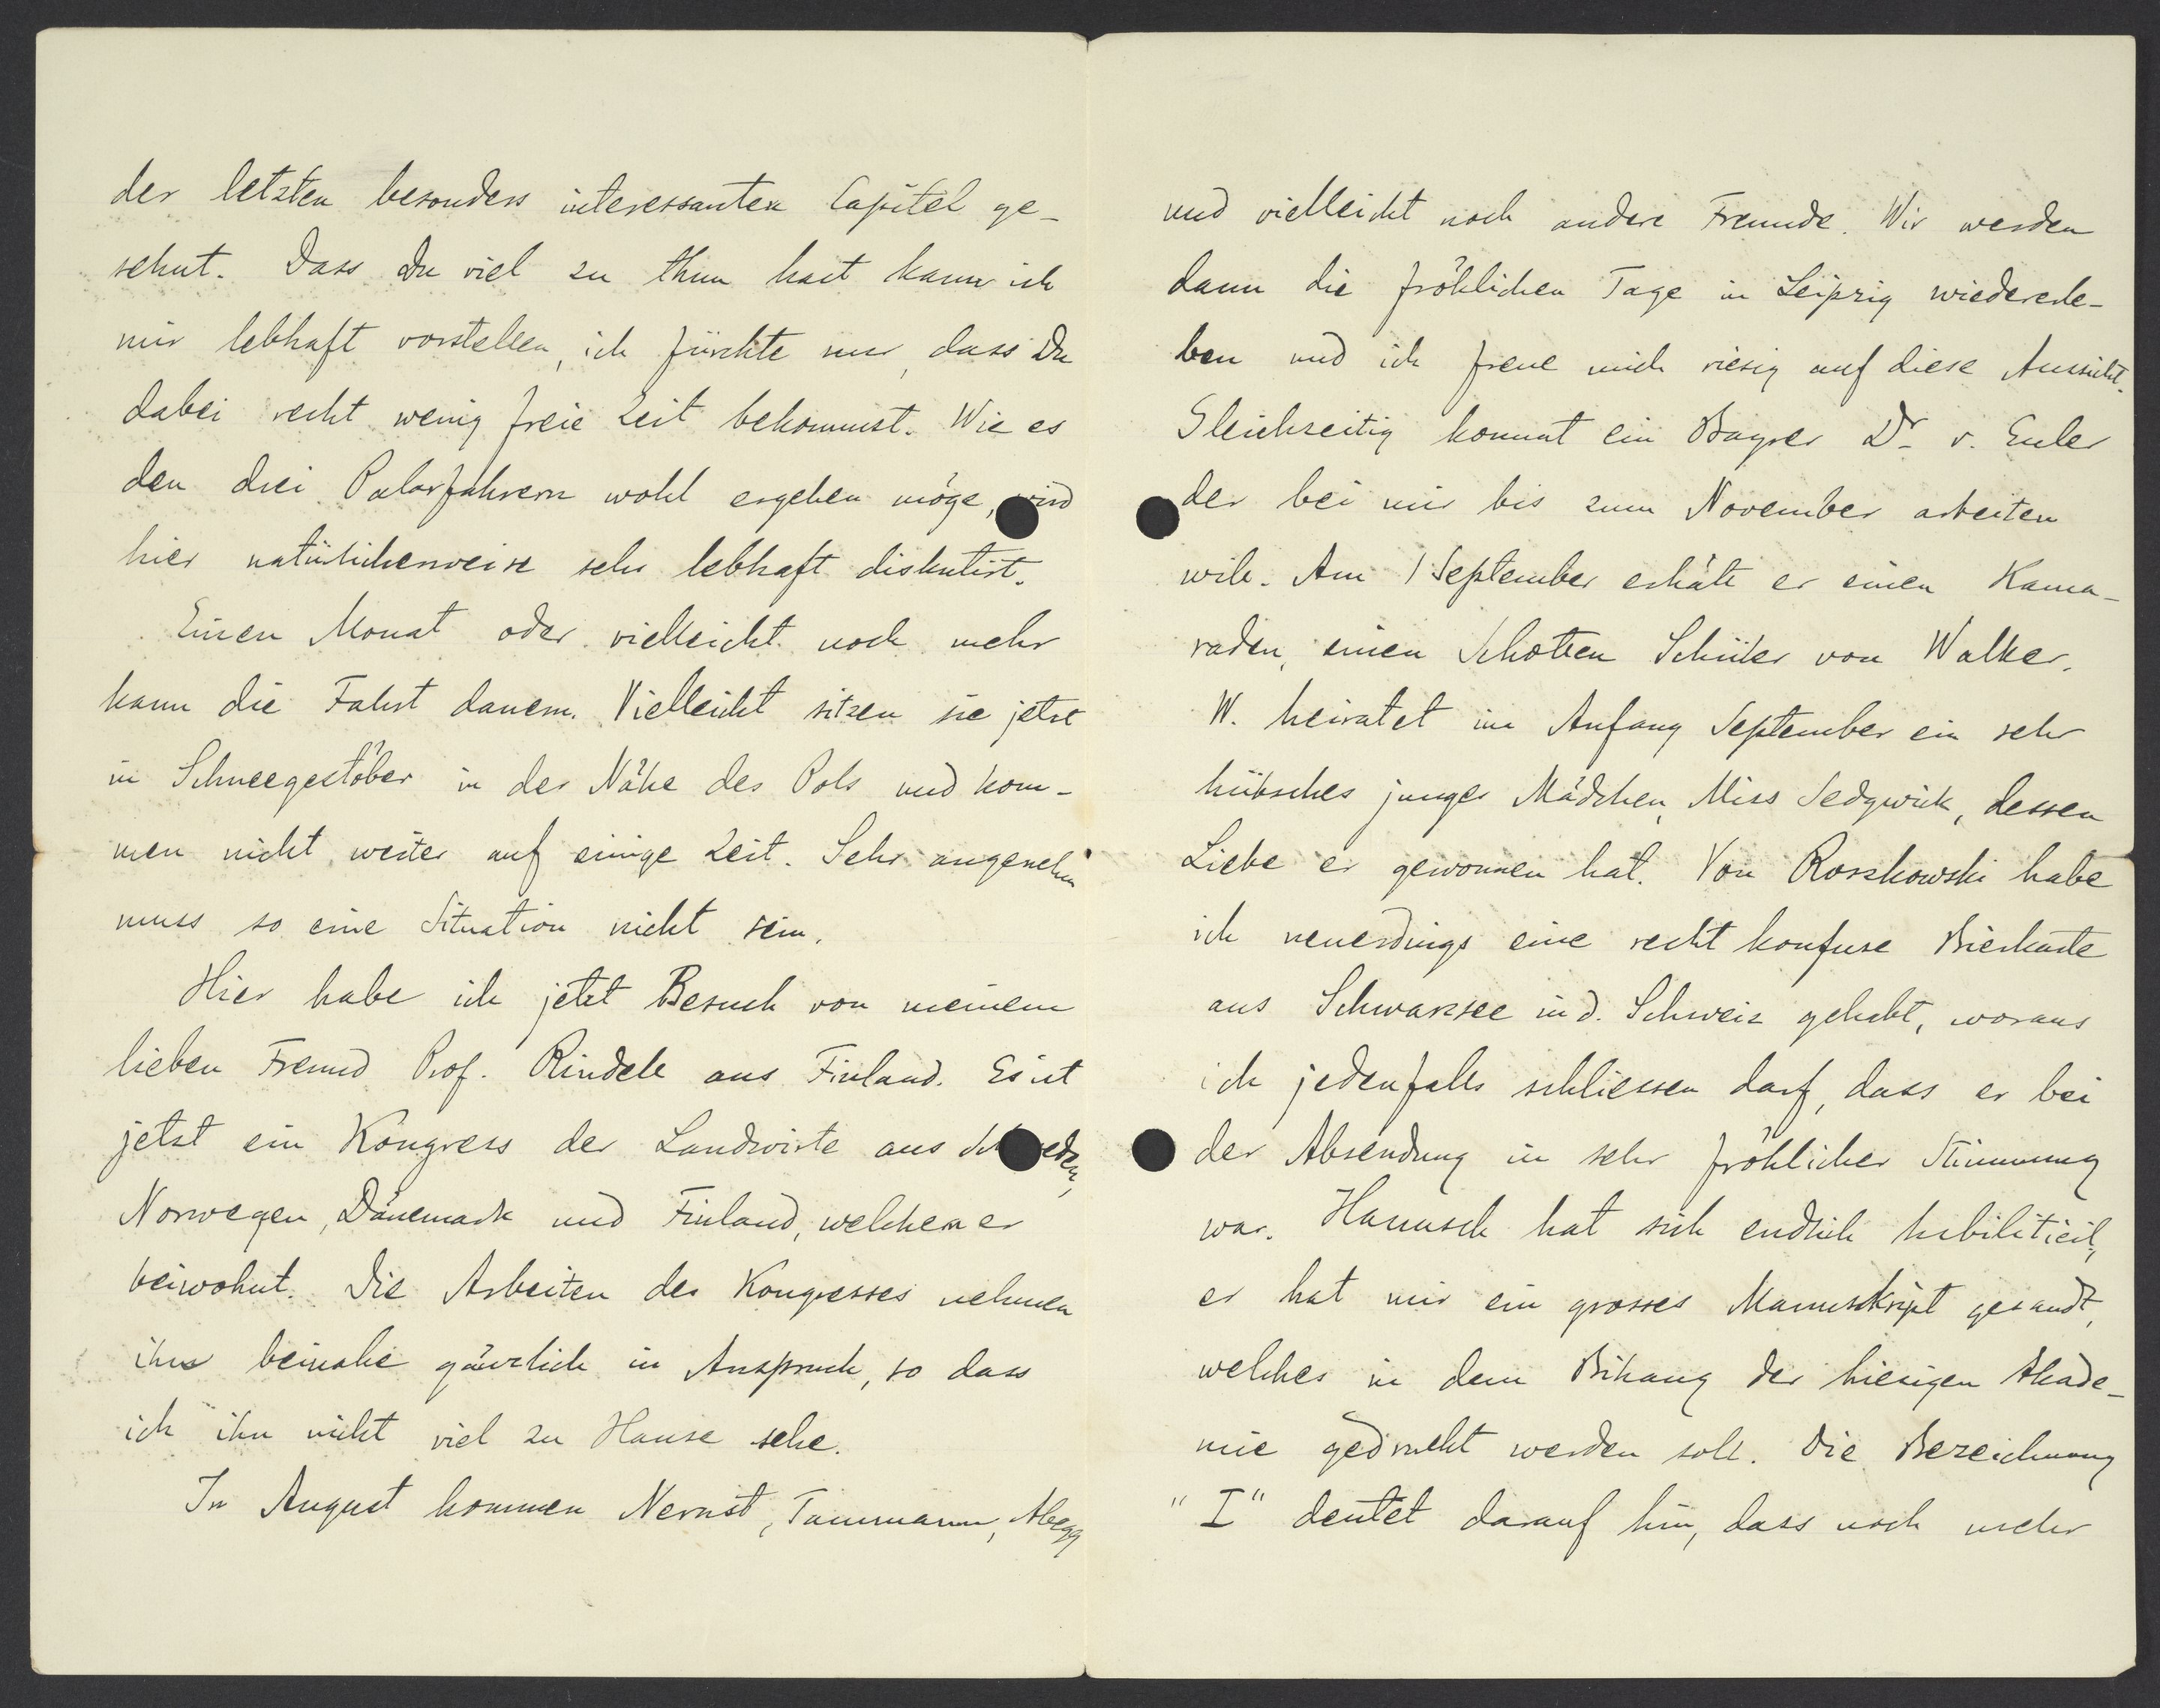 der letzten besonders interessanten Capitel ge-
sehnt. Dass Du viel zu thun hast kann ich
mir lebhaft vorstellen, ich fürchte nur, dass Du
dabei recht wenig freie Zeit bekommst. Wie es
den drei Polarfahrern wohl ergehen möge, wird
hier natürlicherweise sehr lebhaft diskutirt.
Einen Monat oder vielleicht noch mehr
kann die Fahrt dauern. Vielleicht sitzen sie jetzt
in Schneegestöber in der Nähe des Pols und kom-
men nicht weiter auf einige Zeit. Sehr angenehm
muss so eine Situation nicht sein.
Hier habe ich jetzt Besuch von meinem
lieben Freund Prof. Rindell aus Finland. Es ist
jetzt ein Kongress der Landwirte aus Schweden,
Norwegen, Dänemark und Finland, welchem er
beiwohnt. Die Arbeiten des Kongresses nehmen
ihn beinahe gänzlich in Anspruch, so dass
ich ihn nicht viel zu Hause sehe.
In August kommen Nernst, Tammann, Abegg
und vielleicht noch andere Freunde. Wir werden
dann die fröhlichen Tage in Leipzig wiedererle-
ben und ich freue mich riesig auf diese Aussicht.
Gleichzeitig kommt ein Bayrer Dr v. Euler
der bei mir bis zum November arbeiten
will. Am 1 September erhält er einen Kama-
raden, einen Schotten Schüler von Walker.
W. heiratet im Anfang September ein sehr
hübsches junges Mädchen, Miss Sedgwick, dessen
Liebe er gewonnen hat. Von Roszkowski habe
ich neuerdings eine recht konfuse Bierkarte
aus Schwarzsee in d. Schweiz gehabt, woraus
ich jedenfalls schliessen darf, dass er bei
der Absendung in sehr fröhlicher Stimmung
war. Hamusch hat sich endlich habilitiert,
er hat mir ein grosses Manuskript gesandt,
welches in dem Bihang der hiesigen Akade-
mie gedruckt werden soll. Die Bezeichnung
"I" deutet darauf hin, dass noch mehr